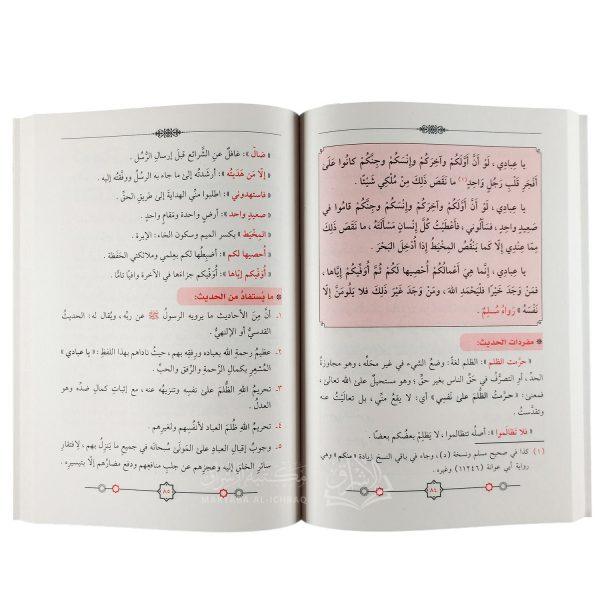 يا عِبادِي، لَوْ أَنَّ أَوَّلَكُمْ وَآخِرَكُمْ وَإِنْسَكُمْ وَجِنَّكُمْ كَانُوا عَلَى
أَفْجَرِ قَلْبِ رَجُلٍ وَاحِدٍ(١) مَا نَقَصَ ذَلِكَ مِنْ مُلْكِي شَيْئًا.
يا عِبادِي، لَوْ أَنَّ أَوَّلَكُمْ وَآخِرَكُمْ وَإِنْسَكُمْ وَجِنَّكُمْ قَامُوا فِي
صَعِيدٍ وَاحِدٍ، فَسَأَلُونِي، فَأَعْطَيْتُ كُلَّ إِنْسَانٍ مَسْأَلَتَهُ، مَا نَقَصَ ذَلِكَ
مِمَّا عِنْدِي إِلَّا كَمَا يَنْقُصُ المِخْيَطُ إِذَا أُدْخِلَ البَحْرَ.
يا عِبادِي، إِنَّمَا هِيَ أَعْمَالُكُمْ أُحْصِيهَا لَكُمْ ثُمَّ أُوَفِّيكُمْ إِيَّاهَا،
فَمَنْ وَجَدَ خَيْرًا فَلْيَحْمَدِ اللهَ، وَمَنْ وَجَدَ غَيْرَ ذَلِكَ فَلا يَلُومَنَّ إِلَّا
نَفْسَهُ» رَوَاهُ مُسْلِمٌ.
* مفردات الحديث:
«حرَّمت الظلم»: الظلم لغةً: وضعُ الشيء في غير محلّه، وهو مجاوزةُ
الحدّ، أو التصرُّف في حَقِّ الناس بغير حقٍّ؛ وهو مستحيلٌ على الله تعالى،
فمعنى: «حرَّمتُ الظُّلمَ على نَفْسِي» أي: لا يقعُ منِّي، بل تعاليْتُ عنه
وتقدَّستُ.
«فلا تَظَالموا»: أصلُه تتظالموا، لا يَظلِمْ بعضُكم بعضًا.
(١) كذا في صحيح مسلم ونسخة (د)، وجاء في باقي النسخ زيادة «منكم» وهي
رواية أبي عوانة (١١٢٤٦) وغيره.
٨٤
«ضالّ»: غافلٌ عن الشَّرائع قبلَ إرسالِ الرُّسُل.
«إلَّا مَن هَدَيتُه»: أرشدتُه إلى ما جاء به الرسلُ ووفَّقته إليه.
«فاستهدوني»: اطلبوا منِّي الهدايةَ إلى طريقِ الحقّ.
«صعيدٍ واحد»: أرضٍ واحدة ومَقامٍ واحدٍ.
«المِخْيَط»: بكسر الميم وسكون الخاء: الإبرة.
«أُحصيها لكم»: أضبطُها لكم بعِلمي وملائكتي الحَفَظة.
«أُوَفِّيكم إيَّاها»: أُوَفِّيكم جزاءَها في الآخرة وافيًا تامًّا.
* ما يُستفادُ من الحديث:
١. أنَّ مِنَ الأحاديثِ ما يرويه الرسولُ ﷺ عن ربِّه، ويُقال له: الحديثُ
القدسيُّ أو الإلهيُّ.
٢. عظيمُ رحمةِ الله بعباده ورِفْقِه بهم، حيثُ ناداهم بهذا اللفظِ: «يا عبادي»
المُشعِرِ بكمالِ الرَّحمةِ والرِّفقِ والحبّ.
٣. تحريمُ اللهِ الظُّلمَ على نفسِه وتنزيهُه عنه، مع إثباتِ كمالِ ضدِّه وهو
العدلُ.
٤. تحريمُ اللهِ ظُلمَ العبادِ لأنفُسِهم ولغيرِهم.
٥. وجوبُ إقبالِ العبادِ على المَولَى سُبحانَه في جميعِ ما يَنزِلُ بهم، لافتقارِ
سائرِ الخلقِ إليه وعجزِهم عن جلبِ منافعِهم ودفعِ مضارِّهم إلَّا بتيسيرِه.
٨٥
MAKTABA AL-ICHRAQ